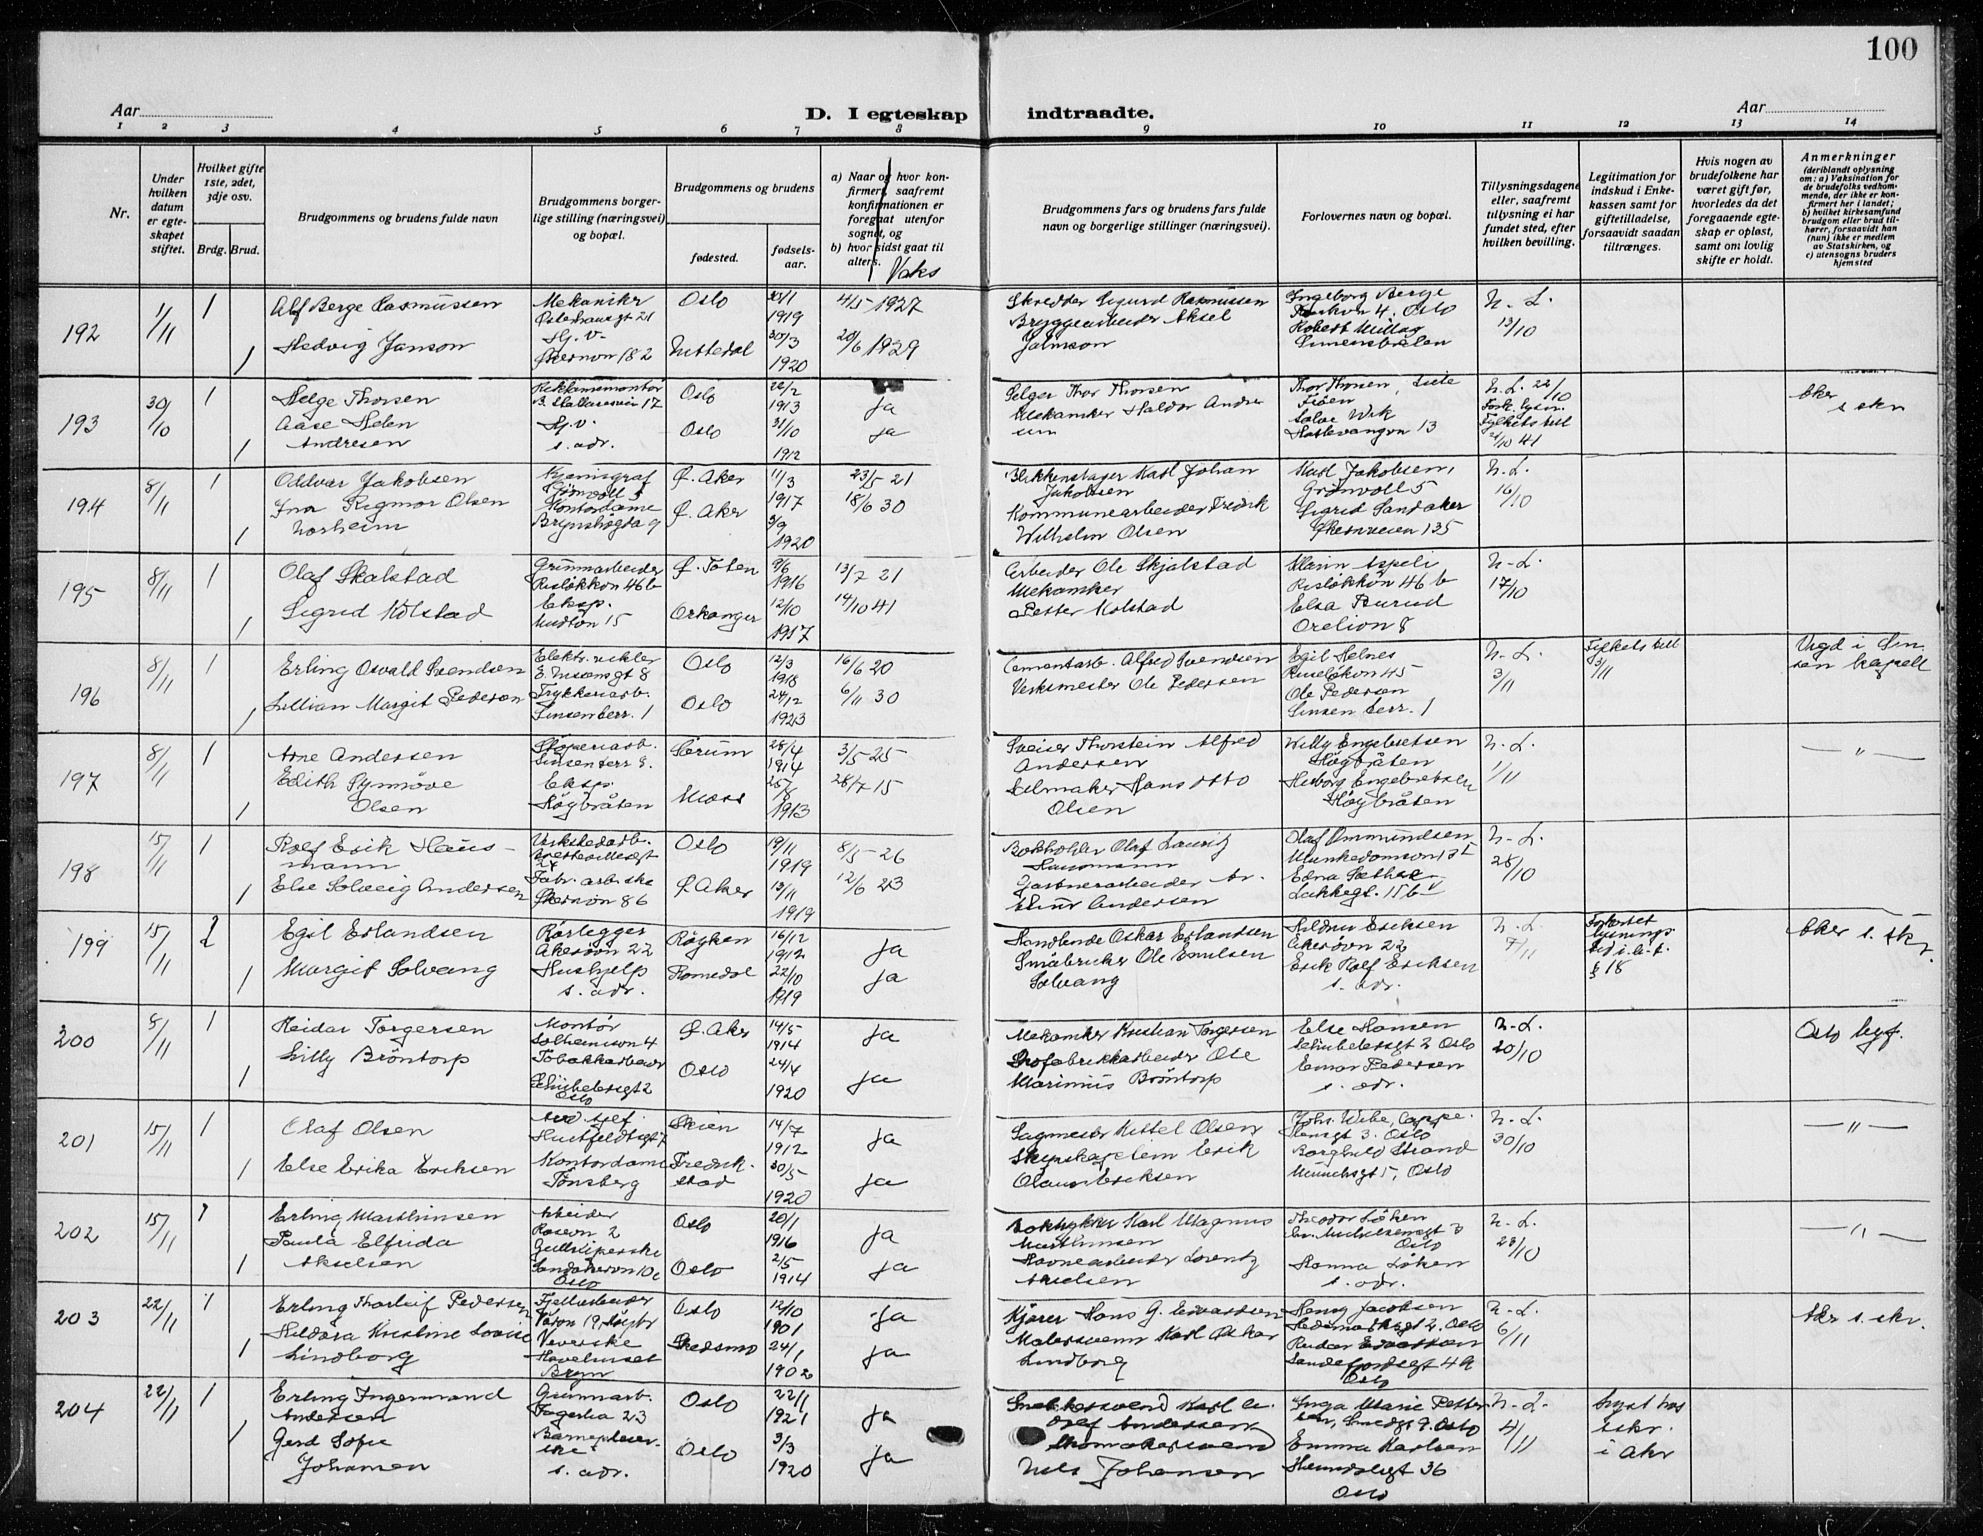 100
Aar
D. I egteskap indtraadte.
Aar
1 2 3 4 5 6 7 8 9 10 11 12 13 14
Nr.
Under hvilken datum er egteskapet stiftet.
Hvilket gifte 1ste, 2det, 3dje osv.
Brdg. Brud.
Brudgommens og brudens fulde navn
Brudgommens borgerlige stilling (næringsvei) og bopæl.
Brudgommens og brudens
fødested.
fødselsaar.
a) Naar og hvor konfirmert, saafremt konfirmationen er foregaat utenfor sognet, og
b) hvor sidst gaat til alters.
Vaks
Brudgommens fars og brudens fars fulde navn og borgerlige stillinger (næringsvei).
Forlovernes navn og bopæl.
Tillysningsdagene eller, saafremt tillysning ei har fundet sted, efter hvilken bevilling.
Legitimation for indskud i Enkekassen samt for giftetilladelse, forsaavidt saadan tiltrænges.
Hvis nogen av brudefolkene har været gift før, hvorledes da det foregaaende egteskap er opløst, samt om lovlig skifte er holdt.
Anmerkninger
(deriblandt oplysning om: a) Vaksination for de brudefolks vedkommende, der ikke er konfirmert her i landet; b) hvilket kirkesamfund brudgom eller brud tilhører, forsaavidt han (hun) ikke er medlem av Statskirken, og c) utensogns bruders hjemsted
192 1/11 1 Alf Berge Rasmussen Mekaniker Oslo 30/1 1919 4/5 1927 Skredder Sigurd Rasmussen Ingeborg Berge 4. Oslo N. L. 13/10
1 Hedvig Janson Hj. v. Økernvn 182 Nittedal 30/3 1920 20/6 1929 Bryggearbeider Aksel Robert
193 30/10 1 Helge Thorsen Reklamemontør 17 Oslo 22/2 1913 ja Selger Thor Thorsen Thor Thorsen, N. L. 22/10 Aker s. skr
1 Aase Helen Andresen Hj. v. s. adr. Oslo 31/10 1912 ja Mekaniker Haldor Andresen Haslevangvn 13 Fork. lysn. Fylkets till 21/10 41
194 8/11 1 Oddvar Jakobsen Kjemigraf Grønvoll 5 Ø. Aker 11/3 1917 23/5 21 Blikkenslager Karl Johan Jakobsen Karl Jakobsen, Grønvoll 5 N. L. 16/10
1 Ina Rigmor Olsen Norheim Kontordame Brynshøgda 9 Ø. Aker 3/9 1920 18/6 30 Kommunearbeider Fredrik Wilhelm Olsen Sigrid Sandaker Økernveien 135
195 8/11 1 Olaf Skalstad Grunnarbeider Risløkkvn 46b Ø. Toten 9/6 1916 13/7 21 Arbeider Ole Skjalstad Aspeli Risløkkvn 46 b N. L. 17/10
1 Sigrid Kolstad Eksp. 15 Orkanger 12/10 1917 14/10 41 Mekaniker Petter Kolstad Elsa Burud Orelion 8
196 8/11 1 Erling Osvald Svendsen Elektr. vikler 8 Oslo 12/3 1918 16/6 20 Cementarb. Alfred Svendsen Egil Helnes Risløkvn 45 N. L. 3/11 Fylkets till 3/11 Vigd i Sinsen kapell
1 Lillian Margit Pedersen Trykkeriarb. Sinsenterr. 1 Oslo 24/12 1923 6/11 30 Verksmester Ole Pedersen Ole Pedersen Sinsen terr. 1
197 8/11 1 Arne Andersen Støperiarb. Sinsenterr 8. Sørum 28/4 1914 3/5-25 Sveiser Thorstein Alfred Andersen Willy Engebretsen Høgbråten N. L. 1/11 — " —
1 Edith Synnöve Olsen Eksp. Høgbråten Moss 1913 28/7 15 Seilmaker Hans Otto Olsen Engebretsen Høgbråten
198 15/11 1 Rolf Erik Hausmann Verkstedarb. 24 Oslo 19/11 1919 8/5-26 Bokholder Olaf Lauritz Hausmann Olaf Ommundsen N. L. 28/10
1 Else Solveig Andersen Fabr. arb.ske Økernvn 86 Ø Aker 13/11 1919 12/6 23 Gartnerarbeider Andersen Edna Lakkegt. 15 b
199 15/11 2 Egil Erlandsen Rørlegger Akersvn 22 Røyken 16/12 1912 ja Handlende Oskar Erlandsen Eriksen Akersvn 22 N. L. 7/11 Forkortet lysningstid i. h. t. § 18 Aker s. skr.
1 Margit Solvang Hushjelp s. adr. Romedal 22/10 1919 ja Småbruker Ole Emilsen Solvang Erik Rolf Eriksen s. adr.
200 8/11 1 Reidar Torgersen Montør Solheimvn 4 Ø. Aker 14/5 1914 ja Mekaniker Kristian Torgersen Else Hansen Schübelersgt 2 Oslo N. L. 20/10 Oslo byf.
1 Lilly Bröntorp Tobakkarbeider Schübelersgt 2 Oslo Oslo 24/4 1920 ja Skofabrikkarbeider Ole Marinius Bröntorp Einar Pedersen s. adr.
201 15/11 1 Olaf Olsen Avd. sjef. Huitfeldtsgt 7 Skien 14/7 1912 ja Sagmester Kittel Olsen Johs. Wibe, 3. Oslo N. L. 30/10 — " —
1 Else Erika Eriksen Kontordame Tönsberg Fredrikstad 30/5 1920 ja Skipskaptein Erik Olaus Eriksen Borghild Strand Munchsgt 5, Oslo
202 15/11 1 Erling Marthinsen Arbeider Rosenvn 2 Oslo 20/1 1916 ja Boktrykker Karl Magnus Marthinsen Theodor Løken Oslo N. L. 28/10 — " —
1 Paula Elfrida Akselsen Gullsliperske Sandakervn 10c Oslo Oslo 2/5 1914 ja Havnearbeider Lorentz Akselsen Hanna Løken s. adr.
203 22/11 1 Erling Thorleif Pedersen Fjellarbeider 19, Høybr Oslo 12/10 1901 ja Kjører Hans G. Edvardsen Henry Jacobsen Hedemarksgt 2. Oslo N. L. 6/11 Aker s. skr.
1 Hildora Kristine Lovise Lindborg Veverske Hovelhuset Bryn Skedsmo 24/1 1902 ja Malersvenn Karl Oskar Lindborg Reidar Edvardsen Sandefjordsgt 4a Oslo
204 22/11 1 Erling Ingemand Andersen Grunnarb. Fagerlia 23 Oslo 22/1 1921 ja Snekkersvend Karl Andersen Inga Marie Pettersen, Smedgt 9. Oslo N. L. 4/11 Lyst hos s.skr. i Akr
1 Gerd Sofie Johansen Barnepleierske s. adr. Oslo 3/3 1920 ja Skomakersvend Nils Johansen Emma Karlsen Heimdalsgt 36 Oslo